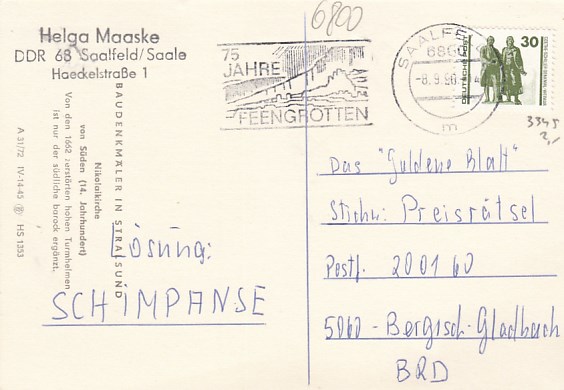 6800
Helga Maaske
DDR 68 Saalfeld/Saale
Haeckelstraße 1
75
JAHRE
FEENGROTTEN
SAALFELD
6800
-8.9.90
m
30
DEUTSCHE POST
3345
2,-
BAUDENKMÄLER IN STRALSUND
Nikolaikirche
von Süden (14. Jahrhundert)
Von den 1662 zerstörten hohen Turmhelmen
ist nur der südliche barock ergänzt.
A 31/72 IV-14-45 HS 1353
Lösung:
SCHIMPANSE
Das "Goldene Blatt"
Stichw: Preisrätsel
Postf. 200160
5060 - Bergisch-Gladbach
BRD